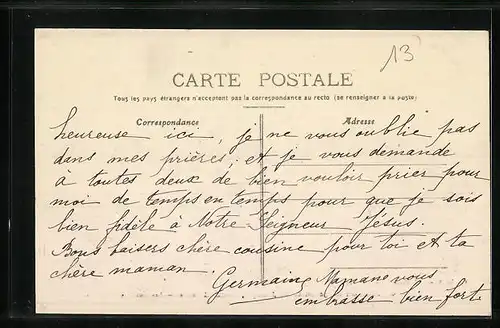 13
CARTE POSTALE
Tous les pays étrangers n'acceptent pas la correspondance au recto (se renseigner à la Poste)
Correspondance
Adresse
heureuse ici, je ne vous oublie pas
dans mes prières; et je vous demande
à toutes deux de bien vouloir prier pour
moi de temps en temps pour que je sois
bien fidèle à Notre Seigneur Jésus.
Bons baisers chère cousine pour toi et ta
chère maman.
Germaine Mamane vous
embrasse bien fort